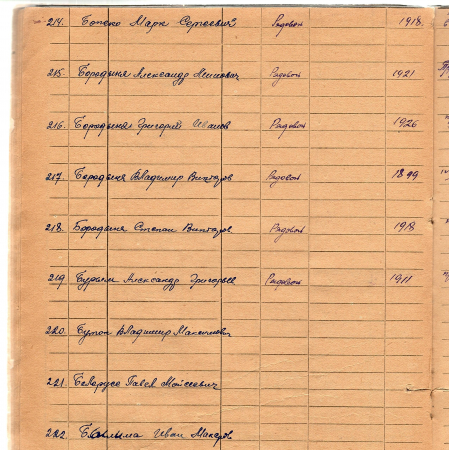 214.Ботско Марк Сергеевич Рядовой 1918.
215. Бородыня Александр Рядовой 1921
216. Бородыня Григорий Иванов Рядовой 1926
217. Бородыня Владимир Викторов Рядовой 1899
218. Бородыня Степан Викторов Рядовой 1918
219 Бурым Александр Григорьев Рядовой 1911
220. Буток Владимир Максимович
221. Беларусо Павел Моисеевич
222. Иван Макаров